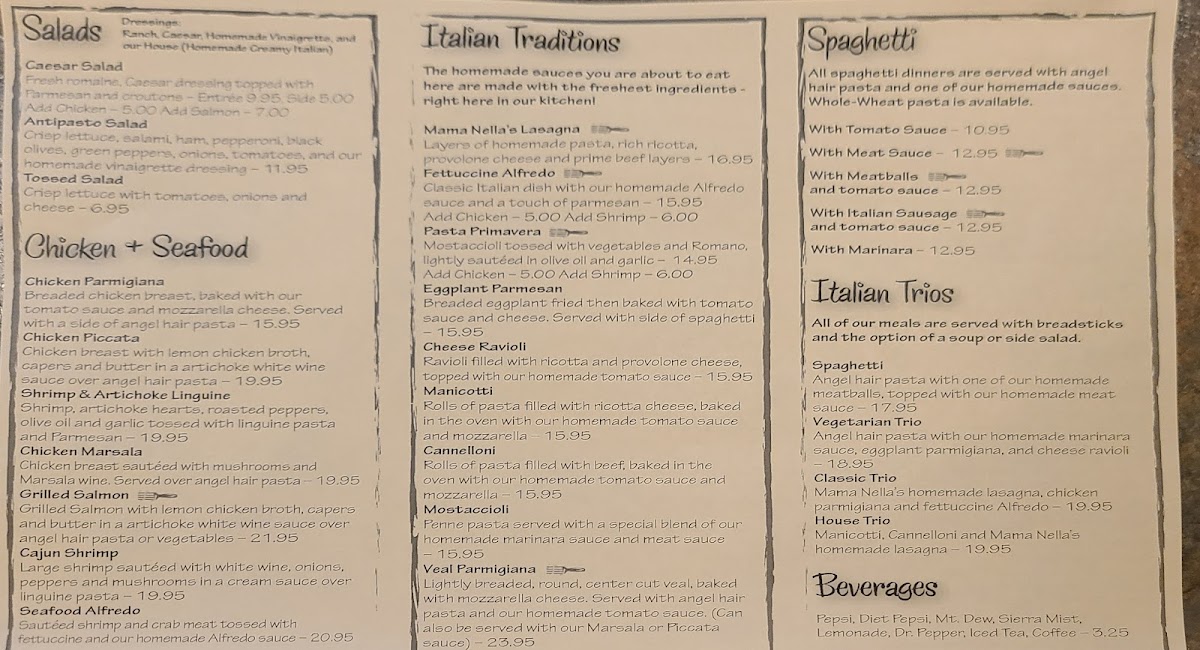 Salads
Dressings:
Ranch, Caesar, Homemade Vinaigrette, and
our House (Homemade Creamy Italian)
Caesar Salad
Fresh romaine, Caesar dressing topped with
Parmesan and croutons – Entrée 9.95, Side 5.00
Add Chicken – 5.00 Add Salmon – 7.00
Antipasto Salad
Crisp lettuce, salami, ham, pepperoni, black
olives, green peppers, onions, tomatoes, and our
homemade vinaigrette dressing – 11.95
Tossed Salad
Crisp lettuce with tomatoes, onions and
cheese – 6.95
Chicken + Seafood
Chicken Parmigiana
Breaded chicken breast, baked with our
tomato sauce and mozzarella cheese. Served
with a side of angel hair pasta – 15.95
Chicken Piccata
Chicken breast with lemon chicken broth,
capers and butter in a artichoke white wine
sauce over angel hair pasta – 19.95
Shrimp & Artichoke Linguine
Shrimp, artichoke hearts, roasted peppers,
olive oil and garlic tossed with linguine pasta
and Parmesan – 19.95
Chicken Marsala
Chicken breast sautéed with mushrooms and
Marsala wine. Served over angel hair pasta – 19.95
Grilled Salmon
Grilled Salmon with lemon chicken broth, capers
and butter in a artichoke white wine sauce over
angel hair pasta or vegetables – 21.95
Cajun Shrimp
Large shrimp sautéed with white wine, onions,
peppers and mushrooms in a cream sauce over
linguine pasta – 19.95
Seafood Alfredo
Sautéed shrimp and crab meat tossed with
fettuccine and our homemade Alfredo sauce – 20.95
Italian Traditions
The homemade sauces you are about to eat
here are made with the freshest ingredients –
right here in our kitchen!
Mama Nella's Lasagna
Layers of homemade pasta, rich ricotta,
provolone cheese and prime beef layers – 16.95
Fettuccine Alfredo
Classic Italian dish with our homemade Alfredo
sauce and a touch of parmesan – 15.95
Add Chicken – 5.00 Add Shrimp – 6.00
Pasta Primavera
Mostaccioli tossed with vegetables and Romano,
lightly sautéed in olive oil and garlic – 14.95
Add Chicken – 5.00 Add Shrimp – 6.00
Eggplant Parmesan
Breaded eggplant fried then baked with tomato
sauce and cheese. Served with side of spaghetti
– 15.95
Cheese Ravioli
Ravioli filled with ricotta and provolone cheese,
topped with our homemade tomato sauce – 15.95
Manicotti
Rolls of pasta filled with ricotta cheese, baked
in the oven with our homemade tomato sauce
and mozzarella – 15.95
Cannelloni
Rolls of pasta filled with beef, baked in the
oven with our homemade tomato sauce and
mozzarella – 15.95
Mostaccioli
Penne pasta served with a special blend of our
homemade marinara sauce and meat sauce
– 15.95
Veal Parmigiana
Lightly breaded, round, center cut veal, baked
with mozzarella cheese. Served with angel hair
pasta and our homemade tomato sauce. (Can
also be served with our Marsala or Piccata
sauce) – 23.95
Spaghetti
All spaghetti dinners are served with angel
hair pasta and one of our homemade sauces.
Whole-Wheat pasta is available.
With Tomato Sauce – 10.95
With Meat Sauce – 12.95
With Meatballs
and tomato sauce – 12.95
With Italian Sausage
and tomato sauce – 12.95
With Marinara – 12.95
Italian Trios
All of our meals are served with breadsticks
and the option of a soup or side salad.
Spaghetti
Angel hair pasta with one of our homemade
meatballs, topped with our homemade meat
sauce – 17.95
Vegetarian Trio
Angel hair pasta with our homemade marinara
sauce, eggplant parmigiana, and cheese ravioli
– 18.95
Classic Trio
Mama Nella's homemade lasagna, chicken
parmigiana and fettuccine Alfredo – 19.95
House Trio
Manicotti, Cannelloni and Mama Nella's
homemade lasagna – 19.95
Beverages
Pepsi, Diet Pepsi, Mt. Dew, Sierra Mist,
Lemonade, Dr. Pepper, Iced Tea, Coffee – 3.25